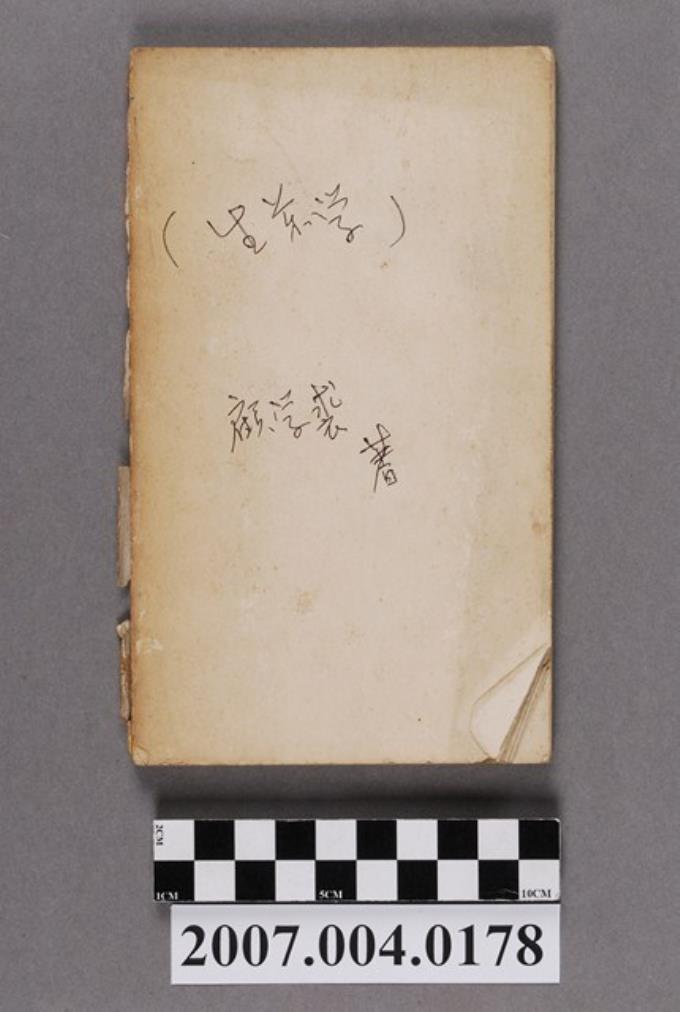 （生学）
顾学裘
著
2CM
1CM 5CM 10CM
2007.004.0178